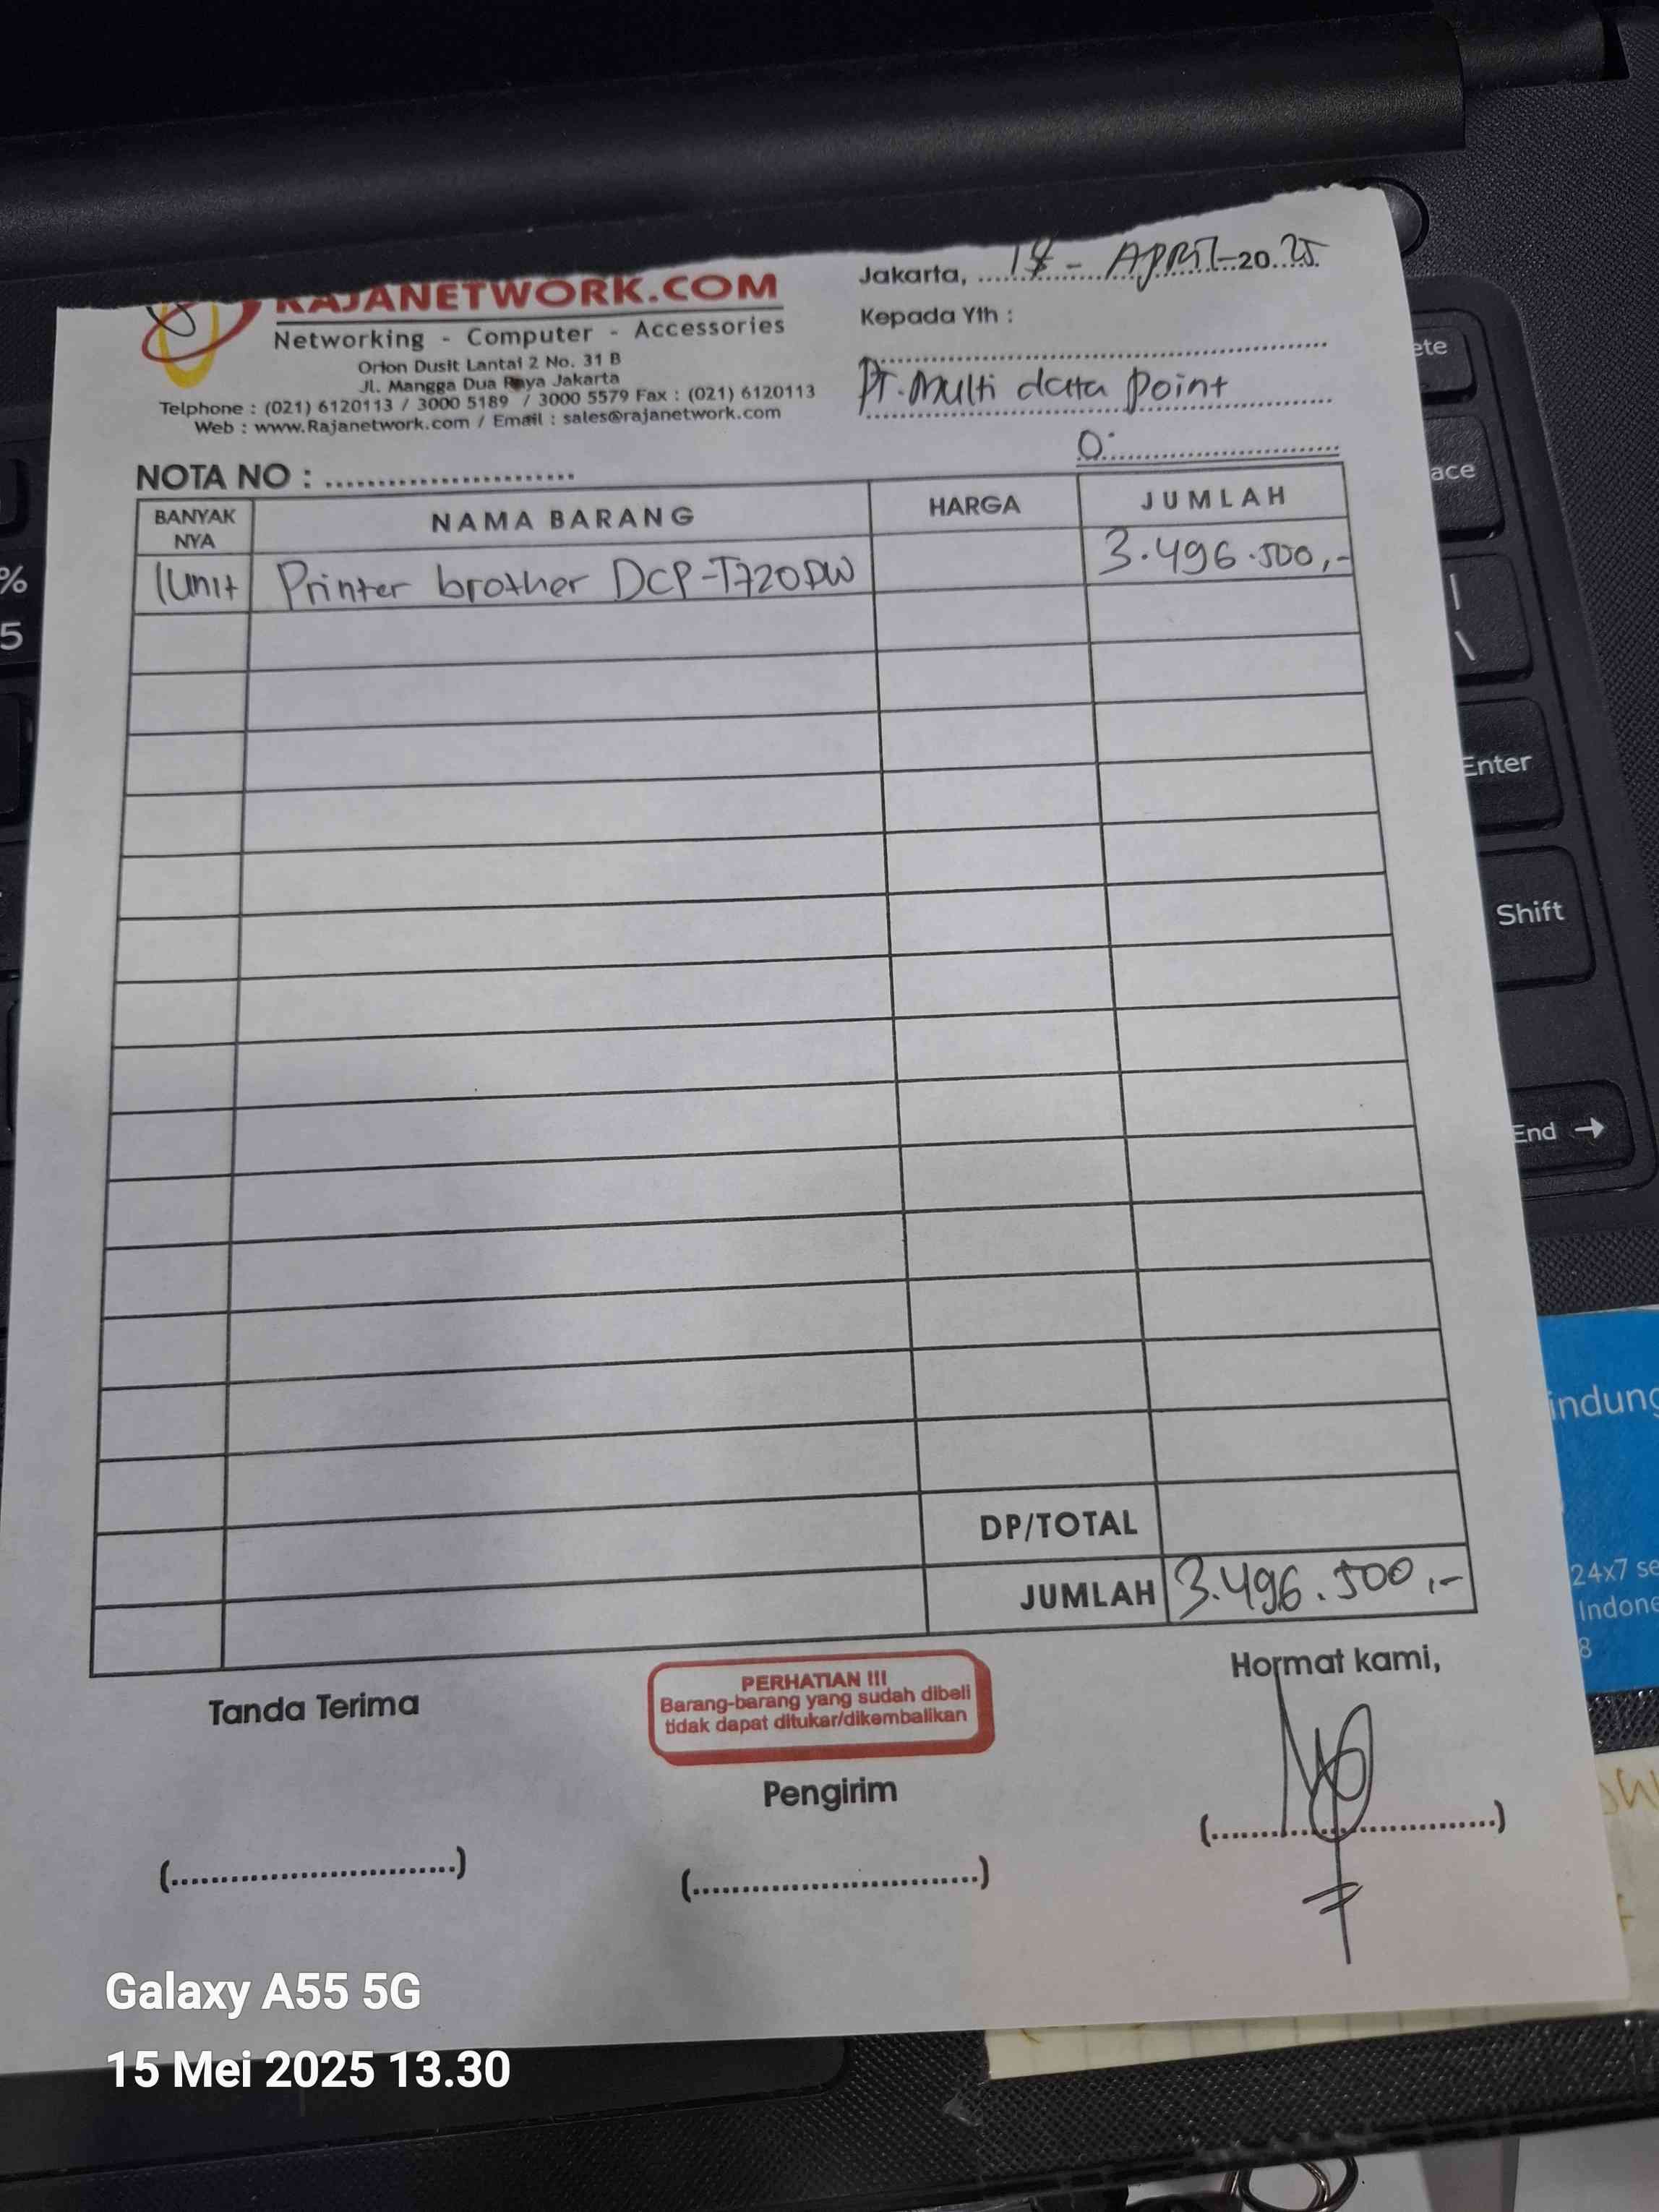 RAJANETWORK.COM
Networking - Computer - Accessories
Orion Dusit Lantai 2 No. 31 B
Jl. Mangga Dua Raya Jakarta
Telphone : (021) 6120113 / 3000 5189 / 3000 5579 Fax : (021) 6120113
Web : www.Rajanetwork.com / Email : sales@rajanetwork.com
Jakarta, - APRIL-2025
Kepada Yth :
PT. Multi data point
NOTA NO :
BANYAK NYA NAMA BARANG HARGA JUMLAH
1Unit Printer brother DCP-T720DW 3.496.500,-
DP/TOTAL
JUMLAH 3.496.500,-
Tanda Terima
PERHATIAN !!!
Barang-barang yang sudah dibeli
tidak dapat ditukar/dikembalikan
Pengirim
Hormat kami,
(...........................)
(...........................)
(...........................)
ete
ace
%
5
|
\
Enter
Shift
End →
indung
24x7 se
Indone
8
Galaxy A55 5G
15 Mei 2025 13.30